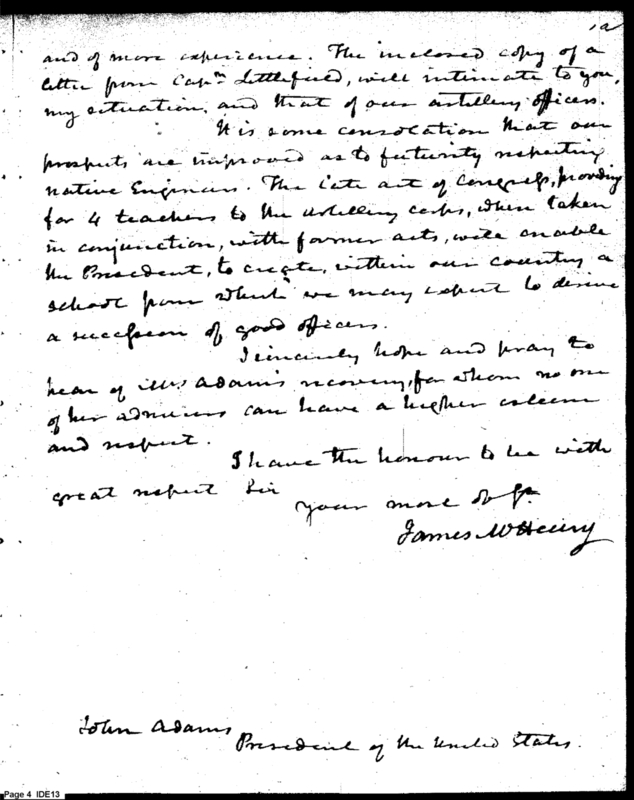 and of more experience. The inclosed copy of a
letter from Cap.n Littlefield, will intimate to you,
my situation, and that of our artillery officers.
It is some consolation that our
prospects are improved as to futurity respecting
native Engineers. The late act of Congress, providing
for 4 teachers to the artillery corps, when taken
in conjunction, with former acts, will enable
the President, to create, within our country a
school from which we may expect to derive
a succession of good officers.
I sincerely hope and pray to
hear of Mrs Adams recovery, for whom no one
of her admirers can have a higher esteem
and respect.
I have the honour to be with
great respect Sir
your most ob st
James McHenry
John Adams
President of the United States.
Page 4 IDE13